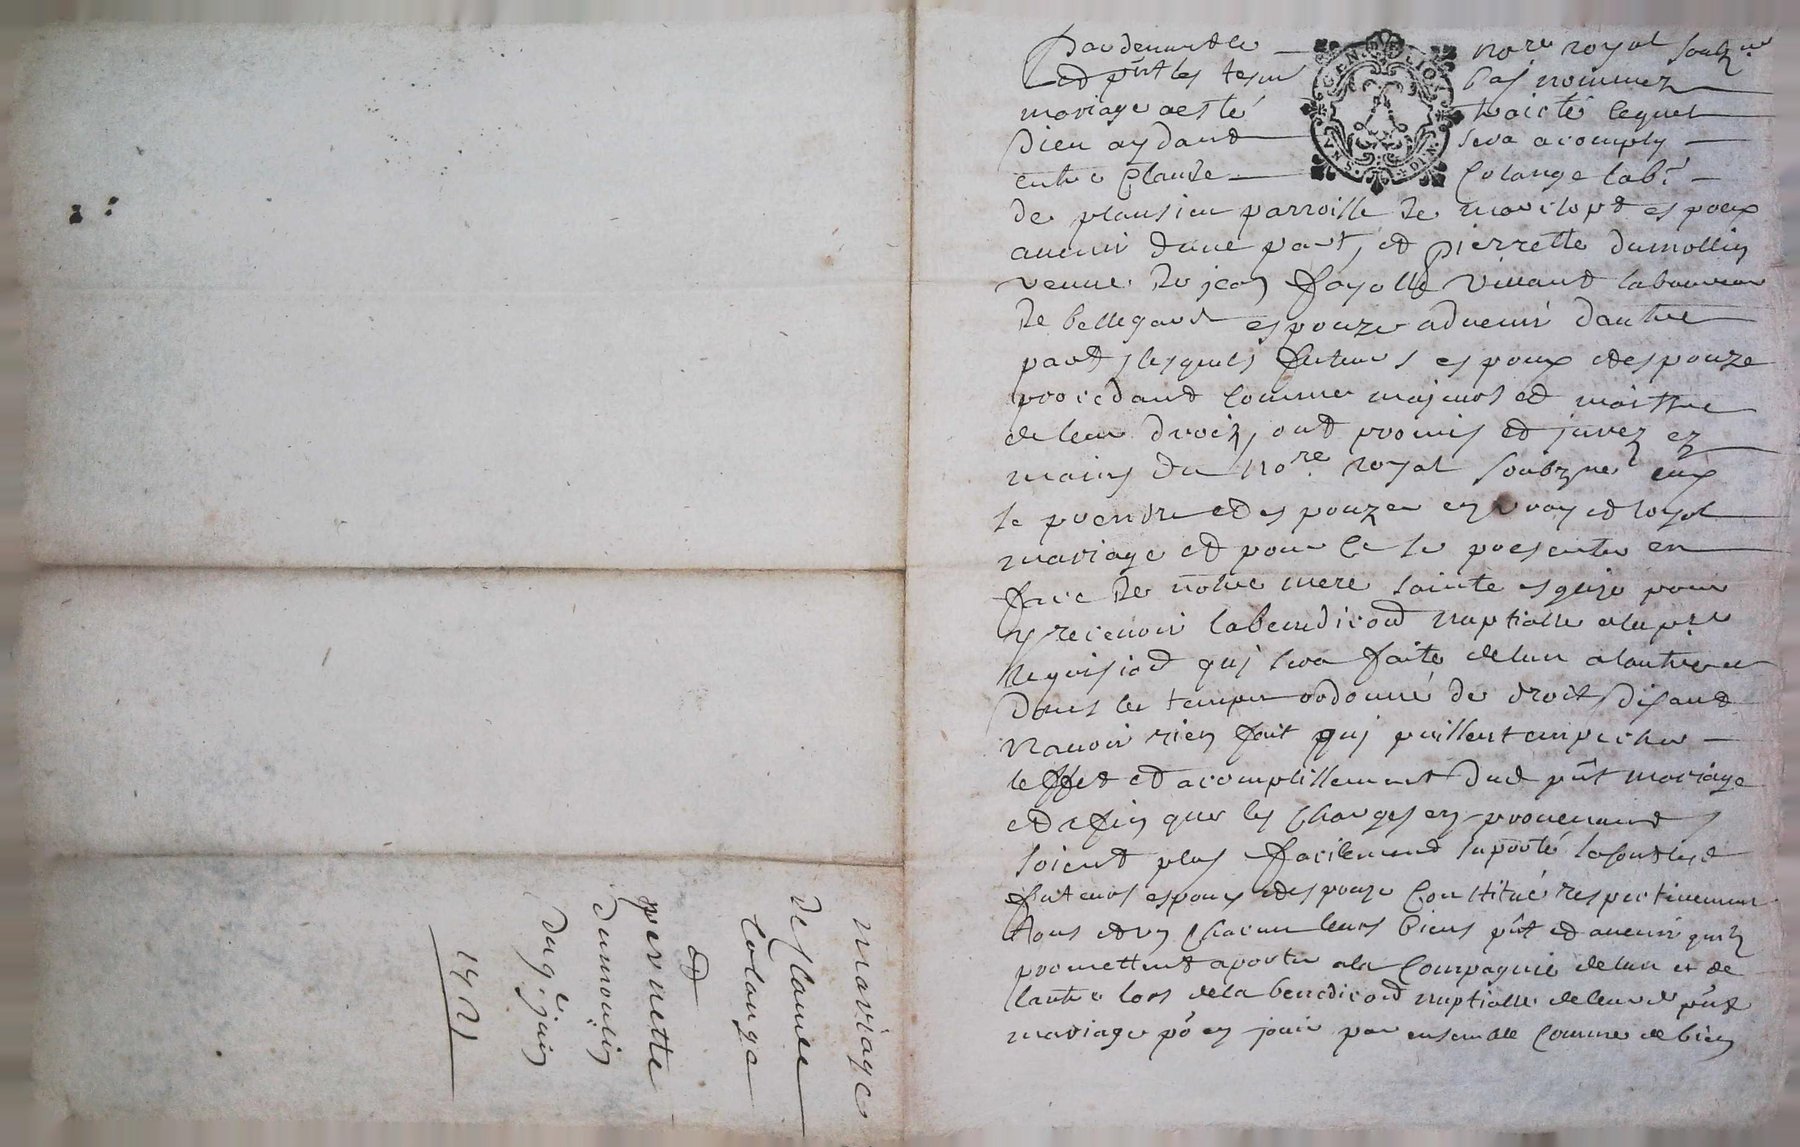 mariage
de Claude
Colange
et
pernette
dumoulin
du 9.e juin
Pardevant le notre royal soubzne
et pnt les tesm bas nommez
mariage a esté traicté lequel
Dieu aydant sera acomply
entre Claude Colange labr
de plansieu parroisse de espoux
avenir dune part, et pierrette dumollin
veuve de jean fayolle vivant laboureur
de bellegarde espouze advenir dautre
part, lesquels futeurs espoux et espouze
procedant comme majeurs et maistre
de leur droitz, ont promis et jurez ez
mains du nore royal soubzne eux
se prendre et espouzer en vray et loyal
mariage et pour ce se presenter en
face de notre mere sainte esglize pour
y recevoir la benediction nuptialle a la pre
requision quj sera faite de lun a lautre et
dans le temps ordonné de droit, disant
navoir rien fait quj puissent empecher
leffet et acomplissement dud pnt mariage
et afin que les charges en provenant
soient plus facilement suporté
futeurs espoux et espouze constitué respectivement
tous et un chacun leurs biens pnt et avenir quilz
promettent aporter a la compagnie de lun et de
lautre lors de la benediction nuptialle de leurd pnt
mariage po en jouir par ensemble comme de bien